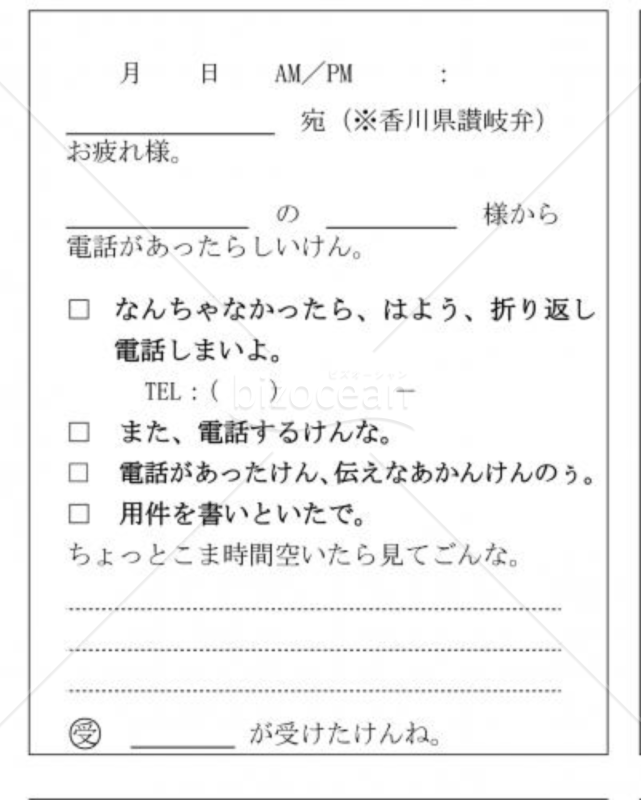 月 日 AM／PM ：
宛（※香川県讃岐弁）
お疲れ様。
の 様から
電話があったらしいけん。
□ なんちゃなかったら、はよう、折り返し
電話しまいよ。
TEL：( ) －
□ また、電話するけんな。
□ 電話があったけん、伝えなあかんけんのぅ。
□ 用件を書いといたで。
ちょっとこま時間空いたら見てごんな。
㊝ が受けたけんね。
ビズオーシャン
bizocean